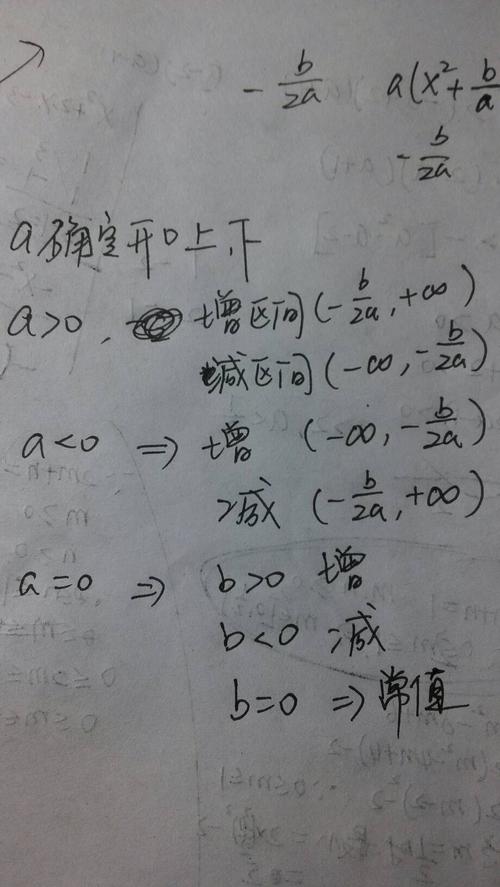 -b/2a a(x²+b/a
-b/2a
a确定开口上,下
a>0, 增区间(-b/2a,+∞)
减区间(-∞,-b/2a)
a<0 ⇒ 增 (-∞,-b/2a)
减 (-b/2a,+∞)
a=0 ⇒ b>0 增
b<0 减
b=0 ⇒常值